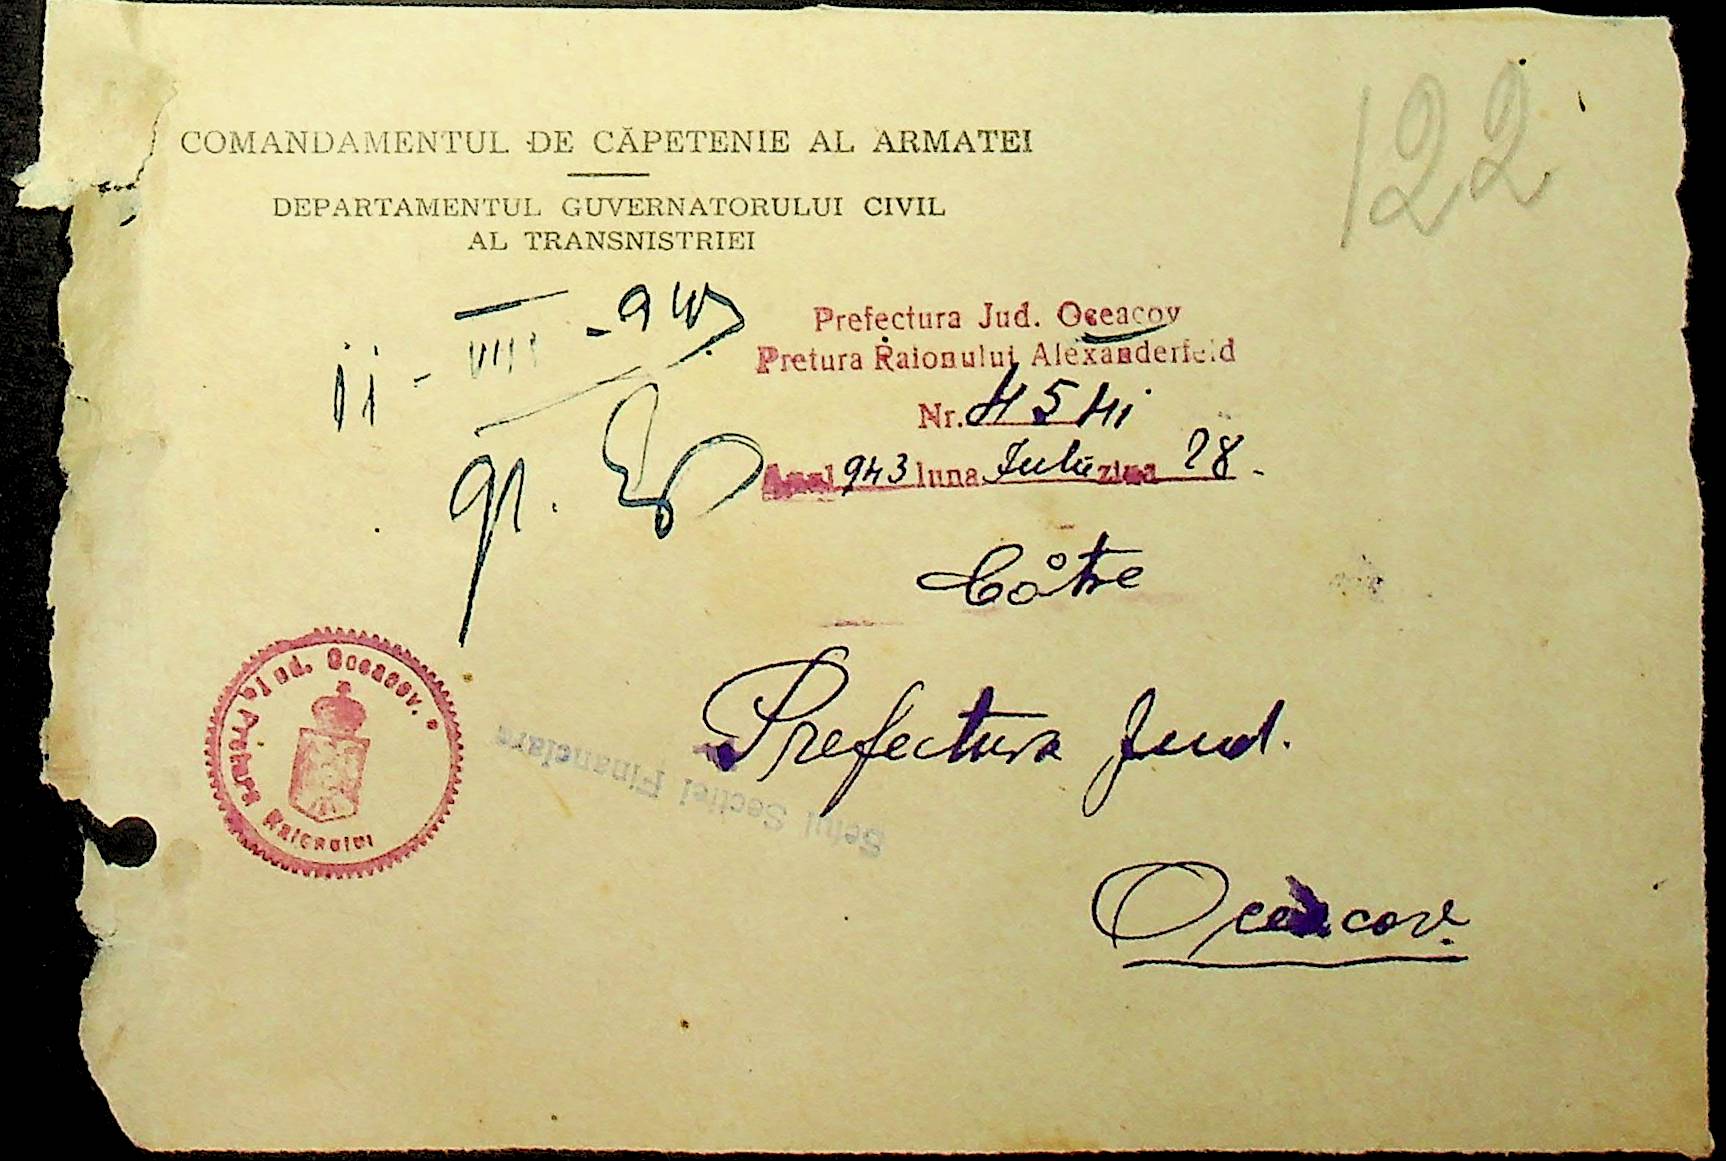 122
COMANDAMENTUL DE CĂPETENIE AL ARMATEI
DEPARTAMENTUL GUVERNATORULUI CIVIL
AL TRANSNISTRIEI
11 - VIII - 943
Prefectura Jud. Oceacov
Pretura Raionului Alexanderfeld
Nr.
Anul 943 luna Iulie ziua 28.
Către
Prefectura Jud.
Oceacov.
Jud. Oceacov. Pretura Raionului
Șeful Secției Financiare